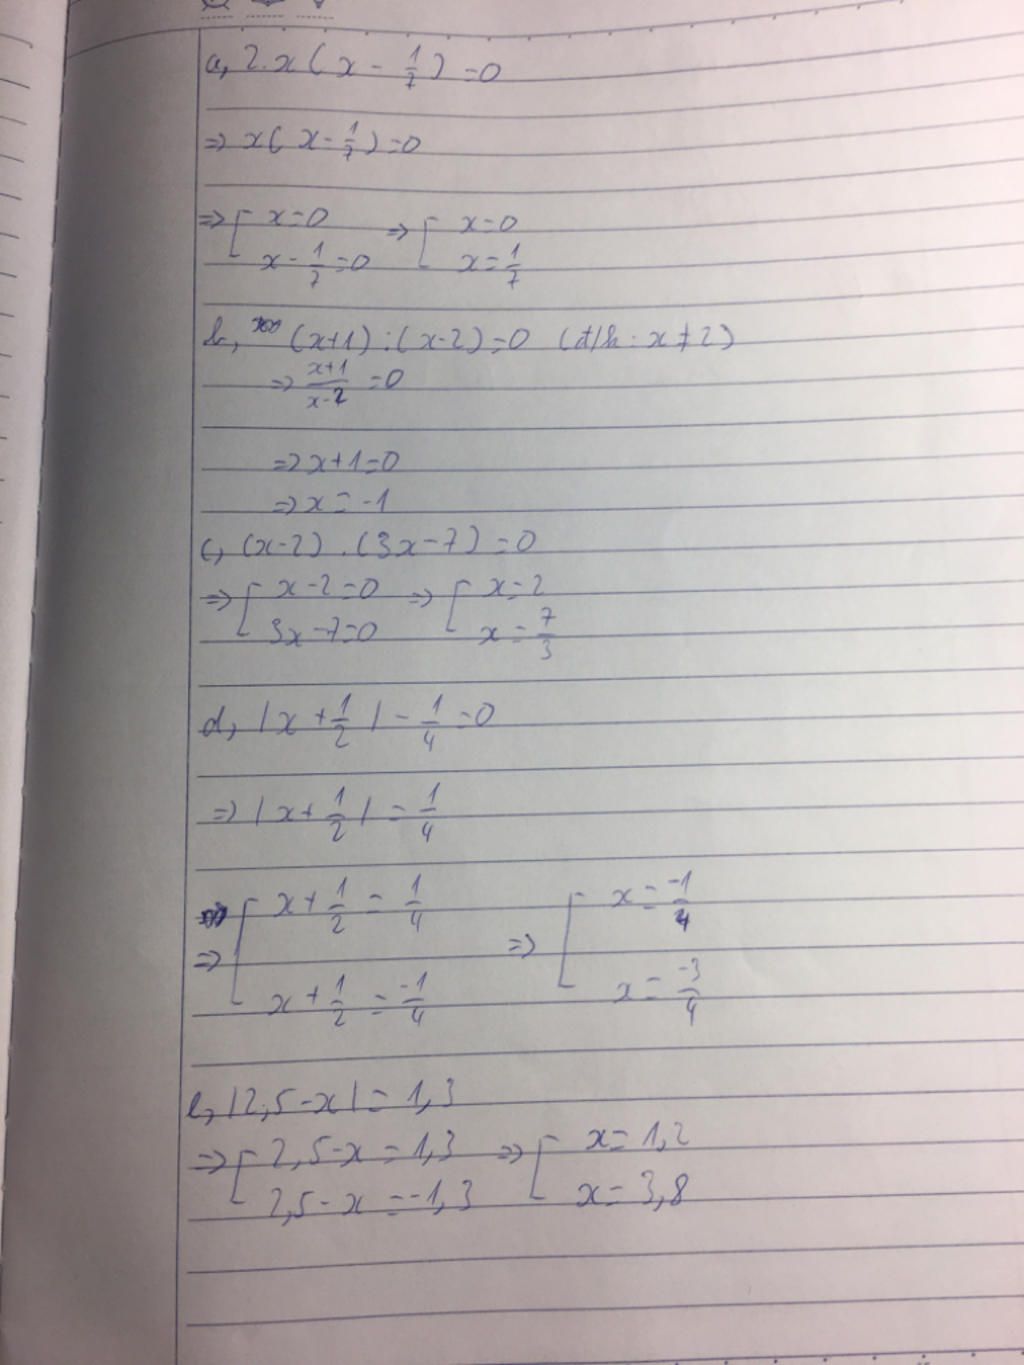 a, 2.x(x - 1/7) = 0
=> x(x - 1/7) = 0
=> [ x = 0 => [ x = 0
x - 1/7 = 0 x = 1/7
b, (x+1) : (x-2) = 0 (đ/k : x ≠ 2)
=> x+1/x-2 = 0
=> x+1 = 0
=> x = -1
c, (x-2) . (3x-7) = 0
=> [ x-2 = 0 => [ x = 2
3x-7 = 0 x = 7/3
d, |x + 1/2| - 1/4 = 0
=> |x + 1/2| = 1/4
=> [ x + 1/2 = 1/4 => [ x = -1/4
x + 1/2 = -1/4 x = -3/4
e, |2,5-x| = 1,3
=> [ 2,5-x = 1,3 => [ x = 1,2
2,5-x = -1,3 x = 3,8